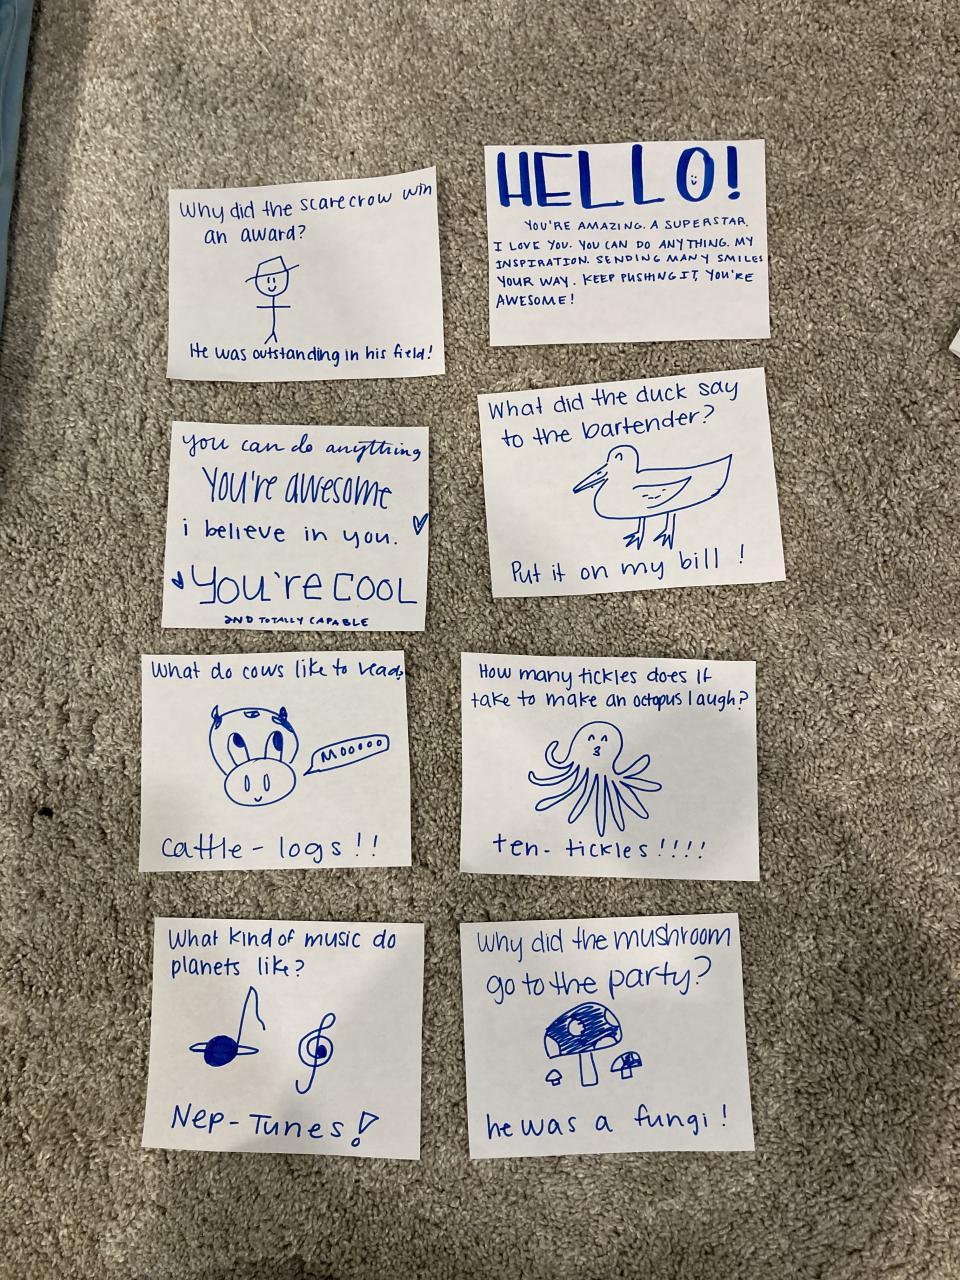 Why did the scarecrow win
an award?
He was outstanding in his field!
HELLO!
YOU'RE AMAZING. A SUPERSTAR.
I LOVE YOU. YOU CAN DO ANYTHING. MY
INSPIRATION. SENDING MANY SMILES
YOUR WAY. KEEP PUSHING IT, YOU'RE
AWESOME!
you can do anything
You're awesome
i believe in you.
You're COOL
AND TOTALLY CAPABLE
What did the duck say
to the bartender?
Put it on my bill!
What do cows like to read?
MOOOOO
cattle-logs!!
How many tickles does it
take to make an octopus laugh?
ten-tickles!!!!
What kind of music do
planets like?
Nep-Tunes!
Why did the mushroom
go to the party?
he was a fungi!